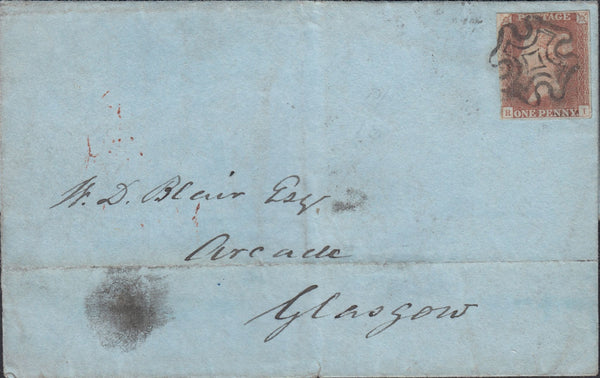 POSTAGE
R I
ONE PENNY
W. D. Blair Esq
Arcade
Glasgow